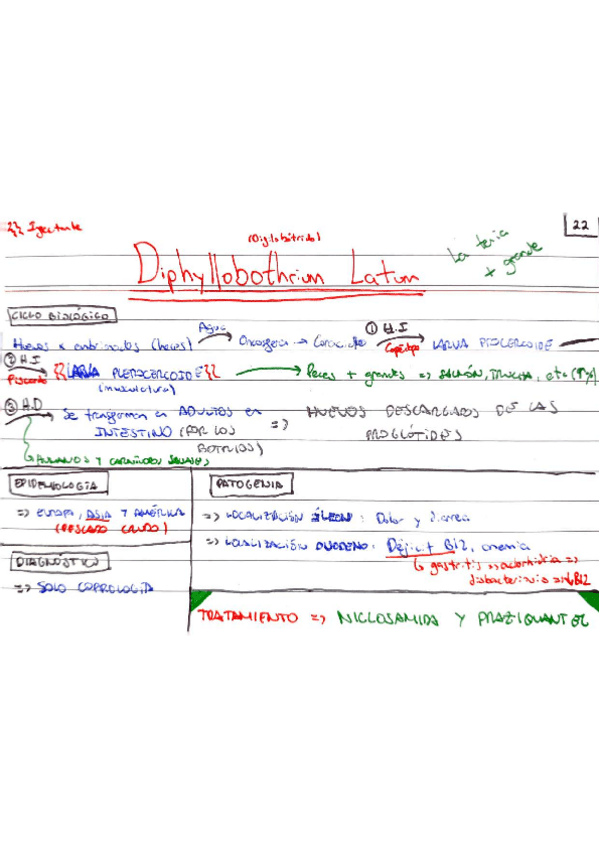 }} Infectante
22
(Digi. bótrido)
Diphyllobothrium Latum
La tenia
+ grande
CICLO BIOLÓGICO
Huevos x embrionados (heces) Agua Oncosfera → Coracidio ① H.I Copépodo LARVA PROCERCOIDE
② H.I Pescado {{LARVA PLEROCERCOIDE}} → Peces + grandes => SALMÓN, TRUCHA, etc
(musculatura)
③ H.D Se transforman en ADULTOS en INTESTINO (POR LOS BOTRIDIOS) => HUEVOS DESCARGADOS DE LAS PROGLÓTIDES
HUMANOS Y CARNÍVOROS SALVAJES
EPIDEMIOLOGÍA
=> EUROPA, ASIA Y AMÉRICA
(PESCADO CRUDO)
DIAGNÓSTICO
=> SOLO COPROLOGÍA
PATOGENIA
=> LOCALIZACIÓN ÍLEON: Dolor y diarrea
=> LOCALIZACIÓN DUODENO: Déficit B12, anemia
↳ gastritis => aclorhidria =>
disbacteriosis => ↓B12
TRATAMIENTO => NICLOSAMIDA Y PRAZIQUANTEL